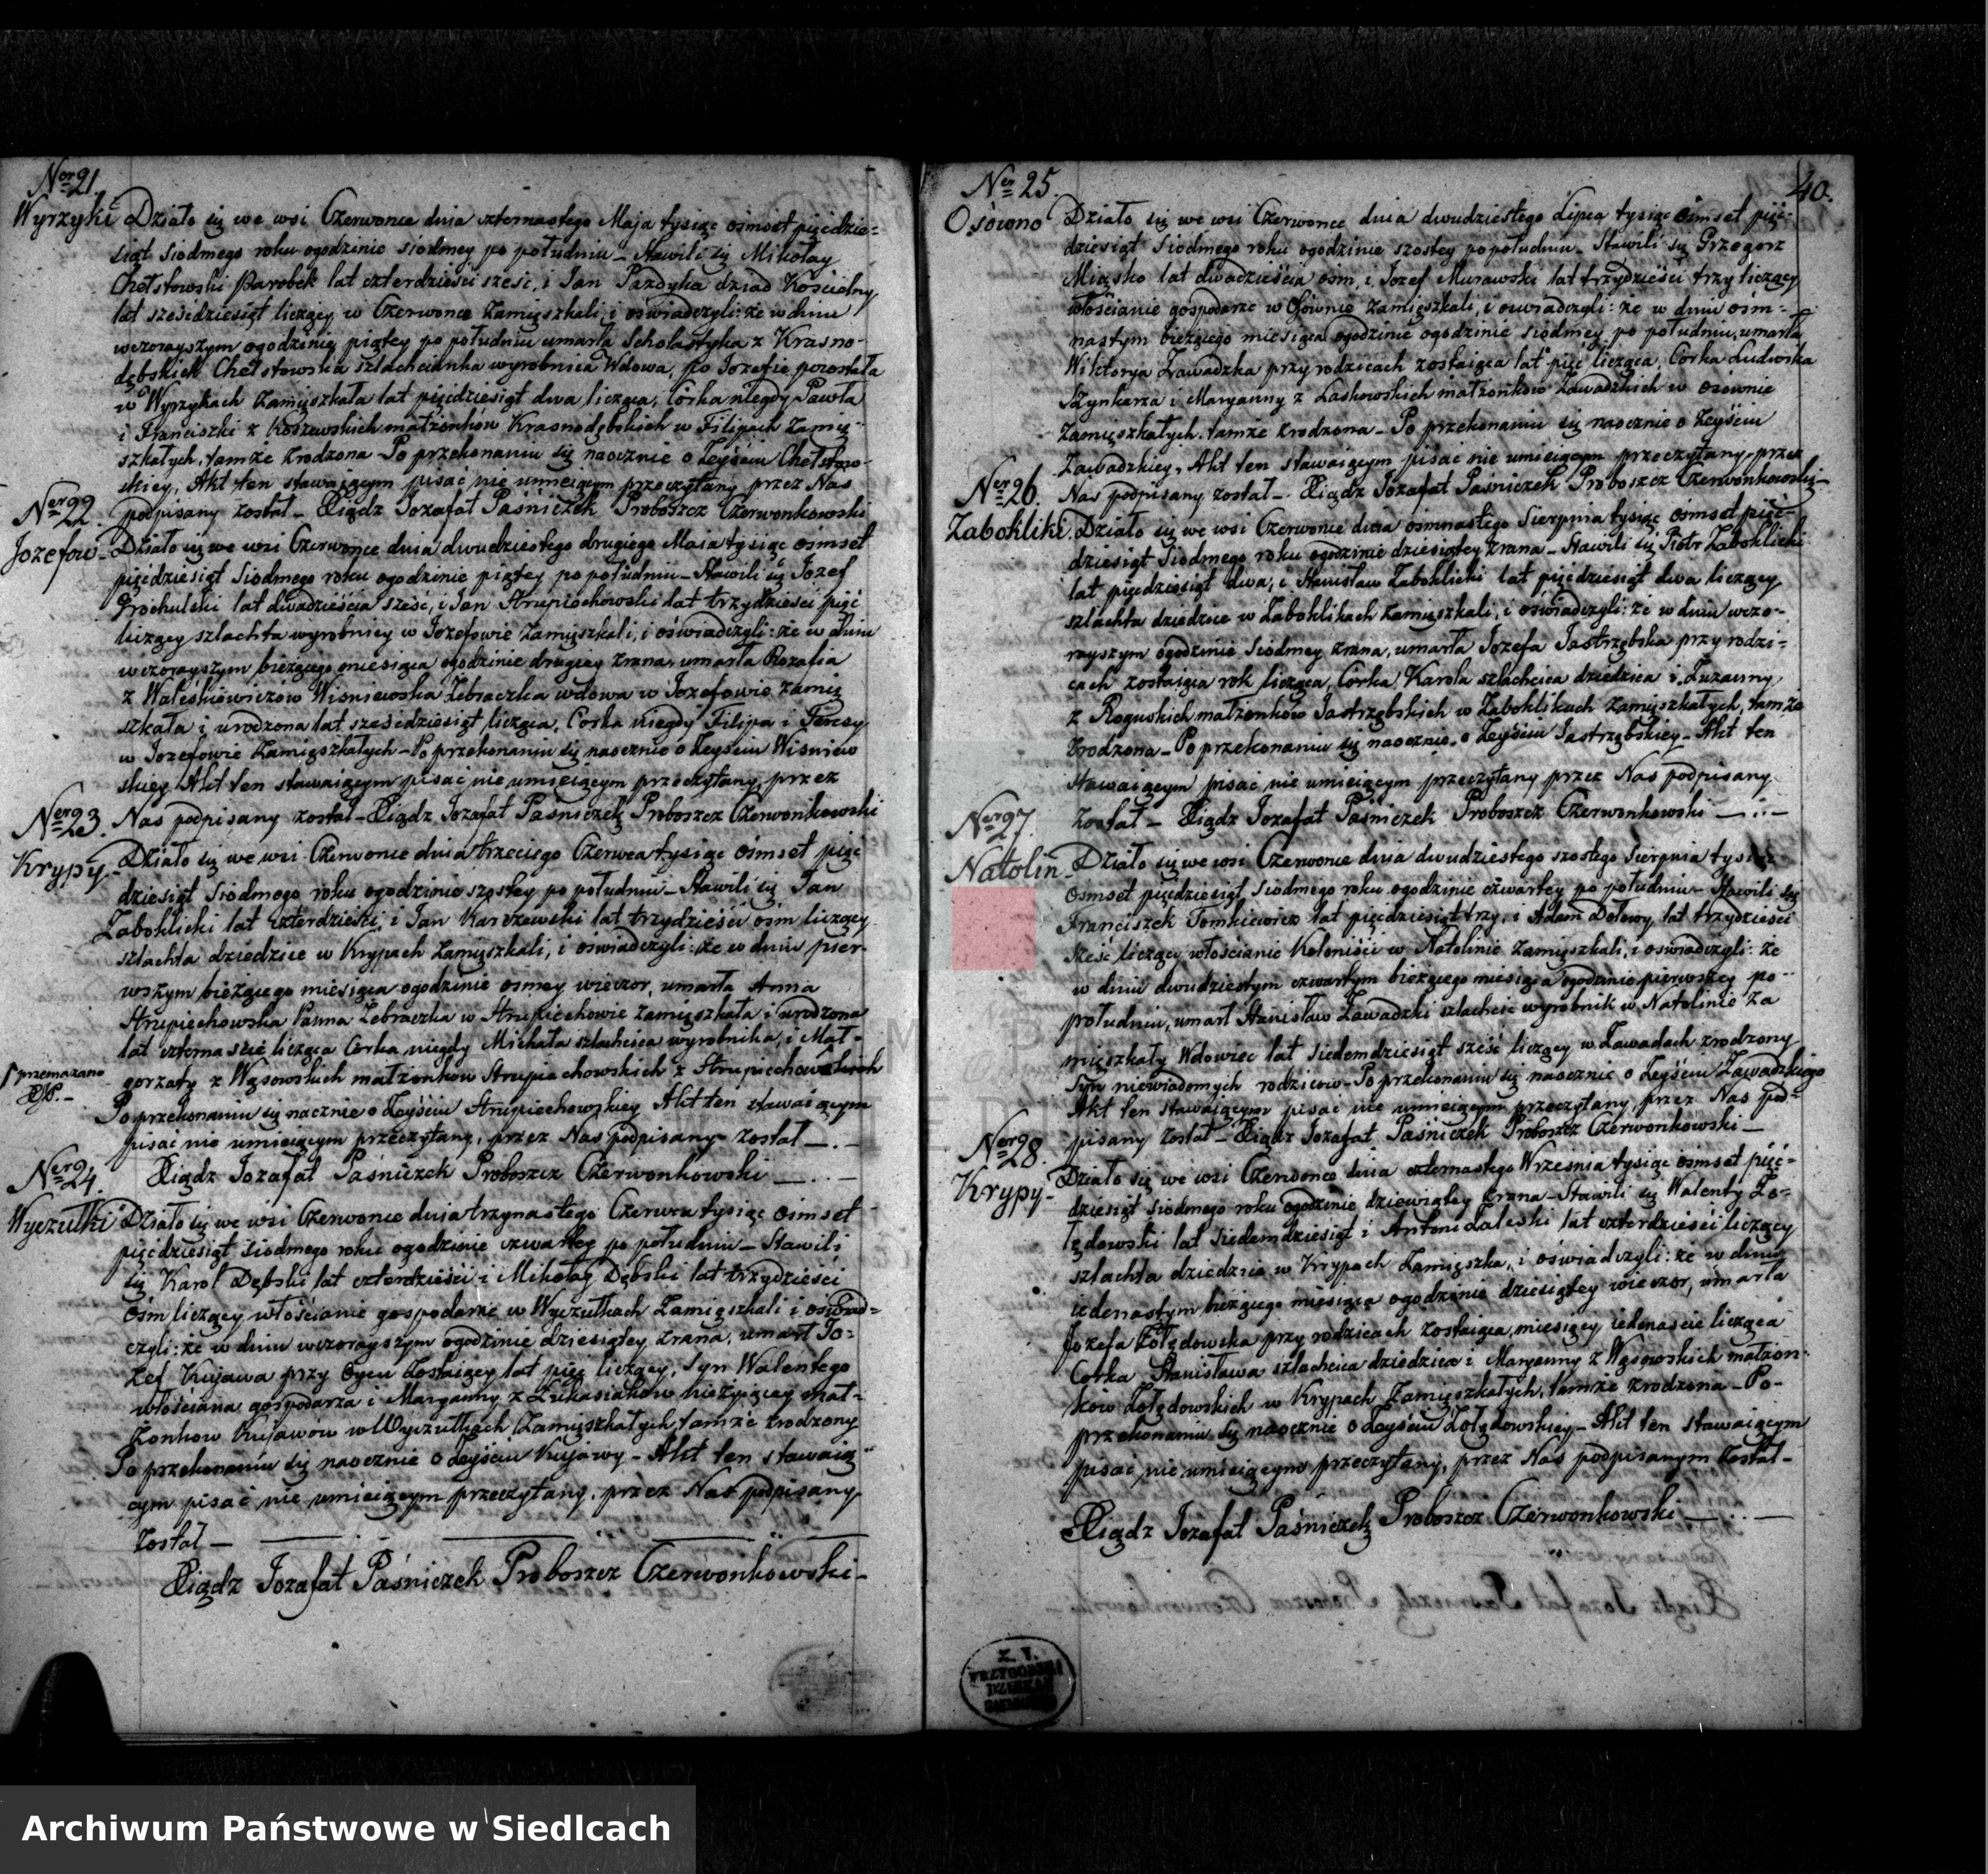 Ner 21.
Wyrzyki Działo się we wsi Czerwonce dnia czternastego Maja tysiąc ośmset pięćdzie-
siąt siodmego roku ogodzinie siodmey po południu – Stawili się Mikołay
Chełstowski Parobek lat czterdzieści sześć, i Jan Pazdyka dziad Kościelny
lat sześćdziesiąt liczący w Czerwonce Zamięszkali, i oświadczyli: że w dniu
wczorayszym ogodzinie piątey po południu umarła Scholastyka z Krasno-
dębskich Chełstowska szlachcianka wyrobnica Wdowa, po Jozefie pozostała
w Wyrzykach zamięszkała lat pięćdziesiąt dwa licząca, Corka niegdy Pawła
i Franciszki z Koszewskich małżonków Krasnodębskich w Filipach Zamię-
szkałych, tamże zrodzona – Po przekonaniu się naocznie o Zeyściu Chełstow-
skiey, Akt ten stawaiącym pisać nie umieiącym przeczytany przez Nas
podpisany został – Xiądz Jozafat Paśniczek Proboszcz Czerwonkowski
Ner 22.
Jozefow – Działo się we wsi Czerwonce dnia dwudziestego drugiego Maia tysiąc ośmset
pięćdziesiąt Siodmego roku ogodzinie piątey po południu – Stawili się Jozef
Grochulski lat dwadzieścia sześć, i Jan Strupiechowski lat trzydzieści pięć
liczący szlachta wyrobnicy w Jozefowie Zamięszkali, i oświadczyli: że w dniu
wczorayszym bieżącego miesiąca ogodzinie drugiey zrana, umarła Rozalia
z Waleskiewiczów Wiśniewska Żebraczka wdowa w Jozefowie zamię
szkała i urodzona lat sześćdziesiąt licząca, Corka niegdy Filipa i Teresy
w Jozefowie Zamięszkałych – Po przekonaniu się naocznie o Zeyściu Wiśniew
skiey Akt ten stawaiącym pisać nie umieiącym przeczytany, przez
Nas podpisany został – Xiądz Jozafat Paśniczek Proboszcz Czerwonkowski
Ner 23.
Krypy – Działo się we wsi Czerwonce dnia trzeciego Czerwca tysiąc ośmset pięć
dziesiąt Siodmego roku ogodzinie szostey po południu – Stawili się Jan
Zaboklicki lat czterdzieści, i Jan Karczewski lat trzydzieści ośm liczący
szlachta dziedzice w Krypach zamięszkali, i oświadczyli: że w dniu pier-
wszym bieżącego miesiąca ogodzinie osmey wieczor, umarła Anna
Strupiechowska Panna Żebraczka w Strupiechowie zamięszkała i urodzona
lat czternaście licząca Corka niegdy Michała szlachcica wyrobnika, i Mał-
gorzaty z Wąsowskich małżonków Strupiechowskich z Strupiechow
przemazano
Po przekonaniu się nacznie o Zeyściu Strupiechowskiey Akt ten stawaiącym
pisać nie umieiącym przeczytany, przez Nas podpisany został –.–
Xiądz Jozafat Paśniczek Proboszcz Czerwonkowski –..–
Ner 24.
Wyczułki Działo się we wsi Czerwonce dnia trzynastego Czerwca tysiąc ośmset
pięćdziesiąt Siodmego roku ogodzinie czwartey po południu – Stawili
się Karol Dębski lat czterdzieści i Mikołay Dębski lat trzydzieści
ośm liczący włościanie gospodarze w Wyczułkach Zamięszkali i oświad-
czyli: że w dniu wczorayszym ogodzinie dziesiątey zrana, umarł Jo-
zef Kujawa przy Oycu Zostaiący lat pięć liczący, Syn Walentego
włościana gospodarza i Maryanny z Łukasiaków nieżyjącey mał-
żonkow Kujawow w Wyczułkach Zamięszkałych, tamże zrodzony
Po przekonaniu się naocznie o Zeyściu Kujawy – Akt ten stawaią
cym pisać nie umieiącym przeczytany, przez Nas podpisany
został –
Xiądz Jozafat Paśniczek Proboszcz Czerwonkowski –
40.
Ner 25.
Osówno Działo się we wsi Czerwonce dnia dwudziestego Lipca tysiąc ośmset pięć-
dziesiąt Siodmego roku ogodzinie szostey popołudniu – Stawili się Grzegorz
Miąsko lat dwadzieścia osm, i Jozef Murawski lat trzydzieści trzy liczący
włościanie gospodarze w Osównie Zamięszkali, i oswiadczyli: że w dniu ośm-
nastym bieżącego miesiąca ogodzinie ogodzinie siodmey po południu, umarła
Wiktorya Zawadzka przy rodzicach zostaiąca lat pięć licząca, Corka Ludwika
Szynkarza i Maryanny z Laskowskich małżonków Zawadzkich w Osównie
Zamięszkałych, tamże zrodzona – Po przekonaniu się naocznie o Zeyściu
Zawadzkiey, Akt ten stawaiącym pisać nie umieiącym przeczytany, przez
Nas podpisany został – Xiądz Jozafat Paśniczek Proboszcz Czerwonkowski –
Ner 26.
Zabokliki. Działo się we wsi Czerwonce dnia osmnastego Sierpnia tysiąc ośmset pięć-
dziesiąt Siodmego roku ogodzinie dziesiątey zrana – Stawili się Piotr Zaboklicki
lat pięćdziesiąt dwa, i Stanisław Zaboklicki lat pięćdziesiąt dwa liczący
szlachta dziedzice w Zaboklikach Zamięszkali, i oświadczyli: że w dniu wczo-
rayszym ogodzinie Siodmey zrana, umarła Jozefa Jastrzębska przy rodzi-
cach zostaiąca rok licząca, Corka Karola szlachcica dziedzica i Zuzanny
z Roguskich małżonków Jastrzębskich w Zaboklikach Zamięszkałych, tamże
zrodzona – Po przekonaniu się naocznie o Zeyściu Jastrzębskiey – Akt ten
stawaiącym pisać nie umieiącym przeczytany przez Nas podpisany
został – Xiądz Jozafat Paśniczek Proboszcz Czerwonkowski –..–
Ner 27.
Natolin – Działo się we wsi Czerwonce dnia dwudziestego szostego Sierpnia tysiąc
ośmset pięćdziesiąt Siodmego roku ogodzinie czwartey po południu – Stawili się
Franciszek Tomkiewicz lat pięćdziesiąt trzy, i Adam Delowy lat trzydzieści
sześć liczący włościanie Koloniści w Natolinie zamięszkali, i oświadczyli: że
w dniu dwudziestym czwartym bieżącego miesiąca ogodzinie pierwszey po-
południu, umarł Stanisław Zawadzki szlachcic wyrobnik w Natolinie Za
mięszkały Wdowiec lat Siedemdziesiąt sześć liczący w Zawadach zrodzony
Syn niewiadomych rodzicow – Po przekonaniu się naocznie o Zeyściu Zawadzkiego
Akt ten stawaiącym pisać nie umieiącym przeczytany, przez Nas pod-
pisany został – Xiądz Jozafat Paśniczek Proboszcz Czerwonkowski –
Ner 28.
Krypy – Działo się we wsi Czerwonce dnia czternastego Września tysiąc ośmset pięć-
dziesiąt Siodmego roku ogodzinie dziewiątey zrana – Stawili się Walenty Żo-
łędowski lat Siedemdziesiąt i Antoni Zaleski lat czterdzieści liczący
szlachta dziedzice w Krypach Zamięszka, i oświadczyli: że w dniu
iedenastym bieżącego miesiąca ogodzinie dziesiątey wieczor, umarła
Jozefa Żołędowska przy rodzicach zostaiąca, miesięcy iedenaście licząca
Corka Stanisława szlachcica dziedzica i Maryanny z Wąsowskich małżon-
kow Żołędowskich w Krypach Zamięszkałych, tamże zrodzona – Po-
przekonaniu się naocznie o Zeyściu Żołędowskiey – Akt ten stawaiącym
pisać nie umieiącym przeczytany, przez Nas podpisanym został –
Xiądz Jozafat Paśniczek Proboszcz Czerwonkowski –..–
Archiwum Państwowe w Siedlcach